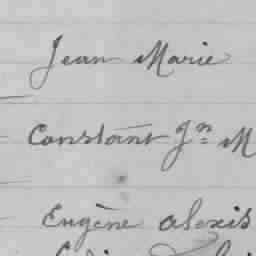 Jean Marie
Constant Jn M
Eugène alexis